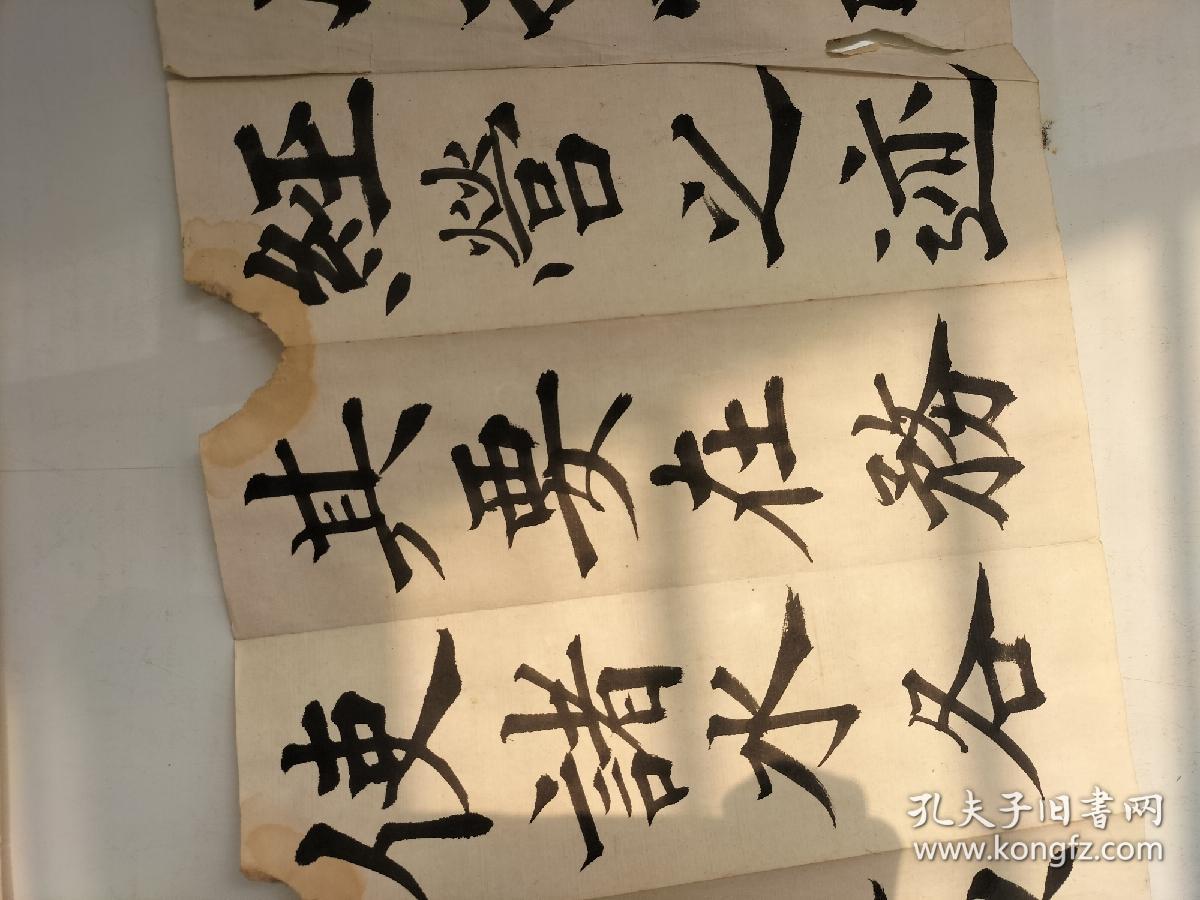 經營之迹
其要在務
使諸水各
孔夫子旧書网
www.kongfz.com